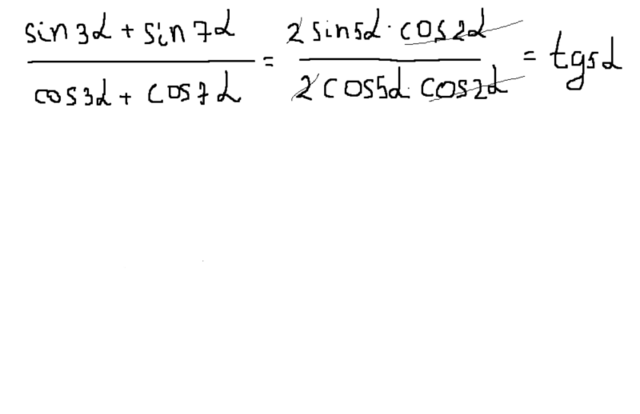 (sin3α + sin7α)/(cos3α + cos7α) = (2sin5α · cos2α)/(2cos5α · cos2α) = tg5α